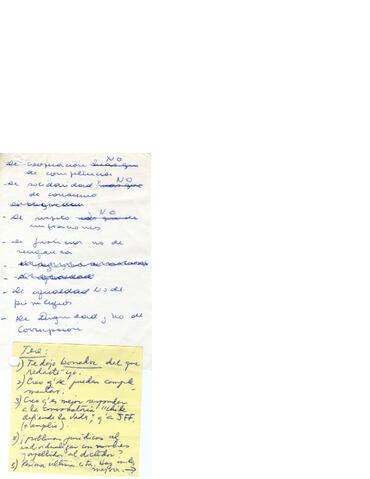 - De cooperacion NO
de complicidad
- De solidaridad NO
de consumo
- De respeto NO
imposiciones
- De justicia no de
venganza
- De igualdad No de
privilegios
- De Dignidad y no de
Corrupcion
Tere:
1) Te dejo borrador del que
redacté yo.
2) Creo q' se pueden comple
mentar.
3) Creo q' es mejor responder
a la convocatoria "Chile
defiende la vida", q' a JFF.
(+ amplio).
4) ¿problemas jurídicos al
individualizar con nombres
y apellidos al dictador?
5) última cita. Hay
mejor. →